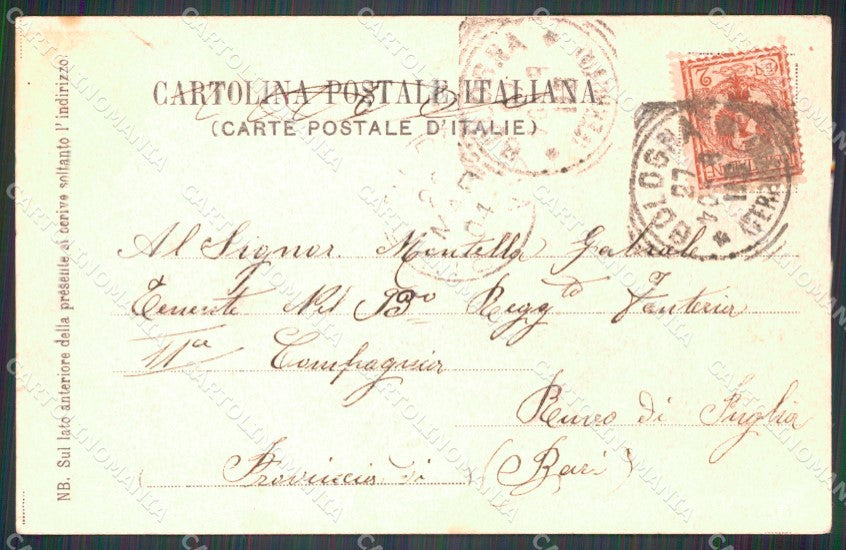 CARTOLINA POSTALE ITALIANA
(CARTE POSTALE D'ITALIE)
NB. Sul lato anteriore della presente si scrive soltanto l'indirizzo.
BOLOGNA
FERROVIA
27
04
MAR
04
2
Al Signor. Montella Gabriele
Tenente Nel 13º Regg to Fanteria
11ª Compagnia
Ruvo di Puglia
Provincia di (Bari)
CARTOLINOMANIA